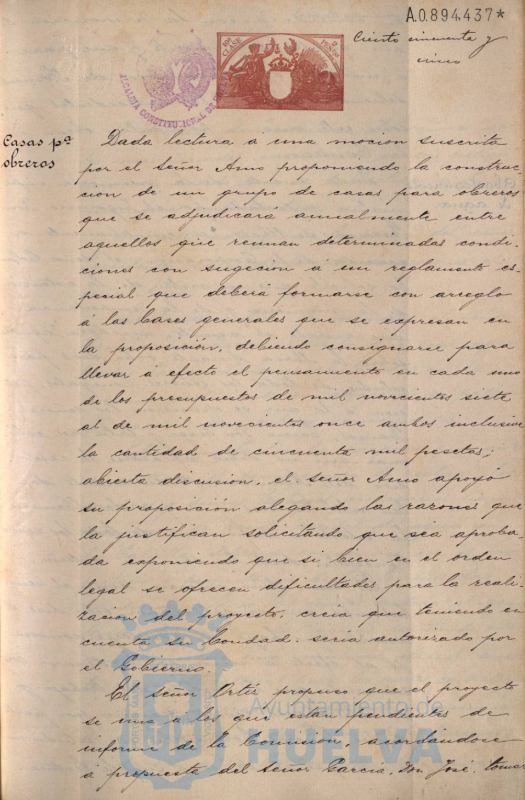 A.0.894.437*
Ciento cincuenta y
cinco
ALCALDIA CONSTITUCIONAL DE
CLASE
Casas pª
obreros
Dada lectura á una mocion suscrita
por el señor Amo proponiendo la construc-
cion de un grupo de casas para obreros
que se adjudicará anualmente entre
aquellos que reunan determinadas condi-
ciones con sugecion á un reglamento es-
pecial que deberá formarse con arreglo
á las bases generales que se expresan en
la proposición, debiendo consignarse para
llevar á efecto el pensamiento en cada uno
de los presupuestos de mil novecientos siete
al de mil novecientos once ambos inclusive
la cantidad de cincuenta mil pesetas;
abierta discusion, el señor Amo apoyó
su proposición alegando las razones que
la justifican solicitando que sea aproba-
da exponiendo que si bien en el orden
legal se ofrecen dificultades para la reali-
zacion del proyecto, creia que teniendo en
cuenta su bondad, seria autorizado por
el Gobierno.
El señor Ortiz propuso que el proyecto
se una a los que estan pendientes de
informe de la Comision, acordandose
á propuesta del señor Garcia, Don José, tomar
Ayuntamiento de
HUELVA